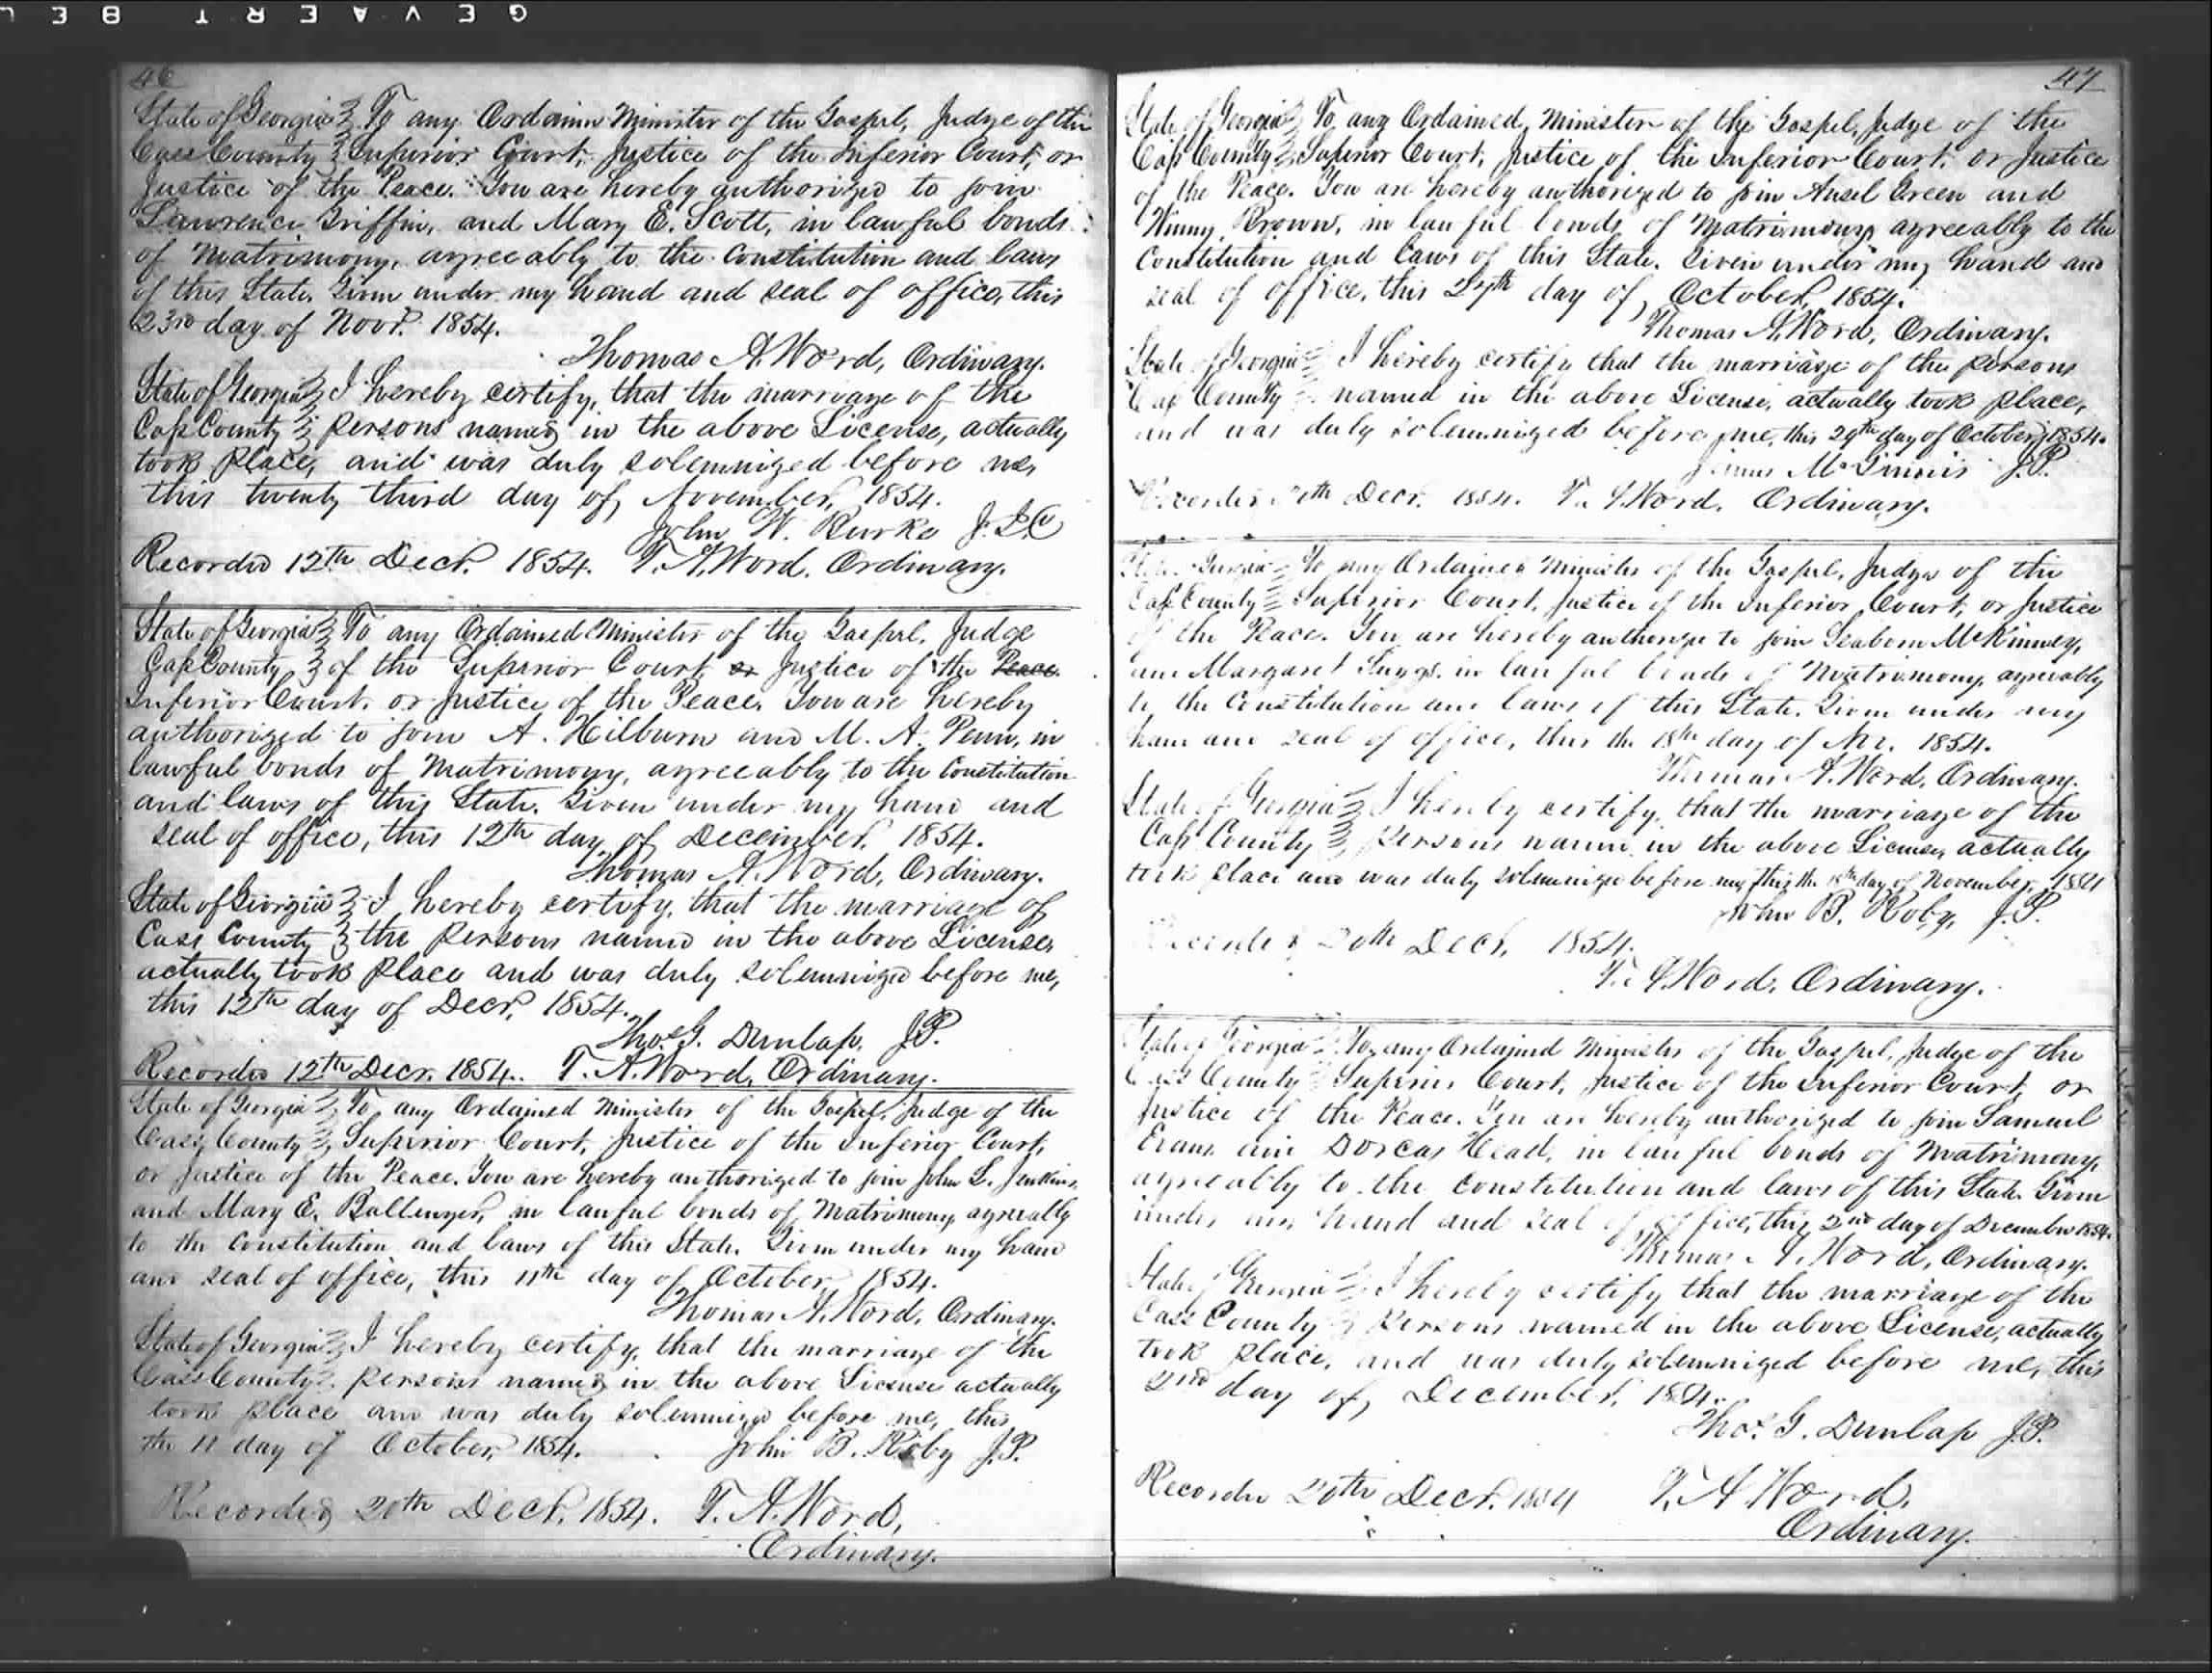 GEVAERT BEL
46
State of Georgia } To any Ordainn Minister of the Gospel, Judge of the
Cass County } Superior Court, Justice of the Inferior Court, or
Justice of the Peace. You are hereby authorized to join
Lawrence Griffin, and Mary E. Scott, in lawful bonds
of Matrimony, agreeably to the Constitution and laws
of this State. Given under my hand and seal of office, this
23rd day of Novr. 1854.
Thomas A. Word, Ordinary.
State of Georgia } I hereby certify, that the marriage of the
Cass County } persons named in the above License, actually
took place, and was duly solemnized before me,
this twenty third day of November, 1854.
John W. Burke J.I.C
Recorded 12th Decr. 1854. T. A. Word. Ordinary.
State of Georgia } To any Ordained Minister of the Gospel, Judge
Cass County } of the Superior Court, or Justice of the Peace
Inferior Court, or Justice of the Peace. You are hereby
authorized to join A. Hilburn and M. A. Penn, in
lawful bonds of Matrimony, agreeably to the Constitution
and laws of this State. Given under my hand and
seal of office, this 12th day of December, 1854.
Thomas A. Word, Ordinary.
State of Georgia } I hereby certify, that the marriage of
Cass County } the persons named in the above License,
actually took place and was duly solemnized before me,
this 12th day of Decr, 1854.
Thos. G. Dunlap. J.P.
Recorded 12th Decr. 1854. T. A. Word, Ordinary.
State of Georgia } To any Ordained Minister of the Gospel, Judge of the
Cass County } Superior Court, Justice of the Inferior Court,
or Justice of the Peace. You are hereby authorized to join John L. Jenkins,
and Mary E. Ballenger, in lawful bonds of Matrimony, agreeably
to the Constitution and laws of this State. Given under my hand
and seal of office, this 11th day of October, 1854.
Thomas A. Word, Ordinary.
State of Georgia } I hereby certify, that the marriage of the
Cass County } persons named in the above License actually
took place and was duly solemnized before me, this
the 11 day of October, 1854. John B. Roby J.P.
Recorded 20th Decr. 1854. T. A. Word,
Ordinary.
47
State of Georgia } To any Ordained, Minister of the Gospel, Judge of the
Cass County } Superior Court, Justice of the Inferior Court, or Justice
of the Peace. You are hereby authorized to join Ansel Green and
Winny Brown, in lawful bonds of Matrimony, agreeably to the
Constitution and Laws of this State. Given under my hand and
seal of office, this 27th day of October, 1854.
Thomas A. Word, Ordinary.
State of Georgia } I hereby certify that the marriage of the persons
Cass County } named in the above License, actually took place,
and was duly solemnized before me, this 29th day of October, 1854.
McGinnis J.P.
Recorded 20th Decr. 1854. T. A. Word. Ordinary.
State of Georgia } To any Ordained Minister of the Gospel, Judge of the
Cass County } Superior Court, Justice of the Inferior Court, or Justice
of the Peace. You are hereby authorize to join Seaborn McKinney,
and Margaret Suggs, in lawful bonds of Matrimony, agreeably
to the Constitution and laws of this State. Given under my
hand and seal of office, this the 18th day of Nov. 1854.
Thomas A. Word, Ordinary.
State of Georgia } I hereby certify, that the marriage of the
Cass County } persons named in the above License, actually
took place and was duly solemnized before me, this the day of November, 1854
John B. Roby, J.P.
Recorded 20th Decr, 1854.
T. A. Word, Ordinary.
State of Georgia } To any Ordained Minister of the Gospel, Judge of the
Cass County } Superior Court, Justice of the Inferior Court, or
Justice of the Peace. You are hereby authorized to join Samuel
Evans and Dorcas Head, in lawful bonds of Matrimony,
agreeably to the Constitution and laws of this State. Given
under my hand and seal of office, this 2nd day of December 1854.
Thomas A. Word, Ordinary.
State of Georgia } I hereby certify that the marriage of the
Cass County } persons named in the above License, actually
took place, and was duly solemnized before me, this
2nd day of, December, 1854.
Thos. G. Dunlap J.P.
Recorded 20th Decr. 1854 T. A. Word,
Ordinary.